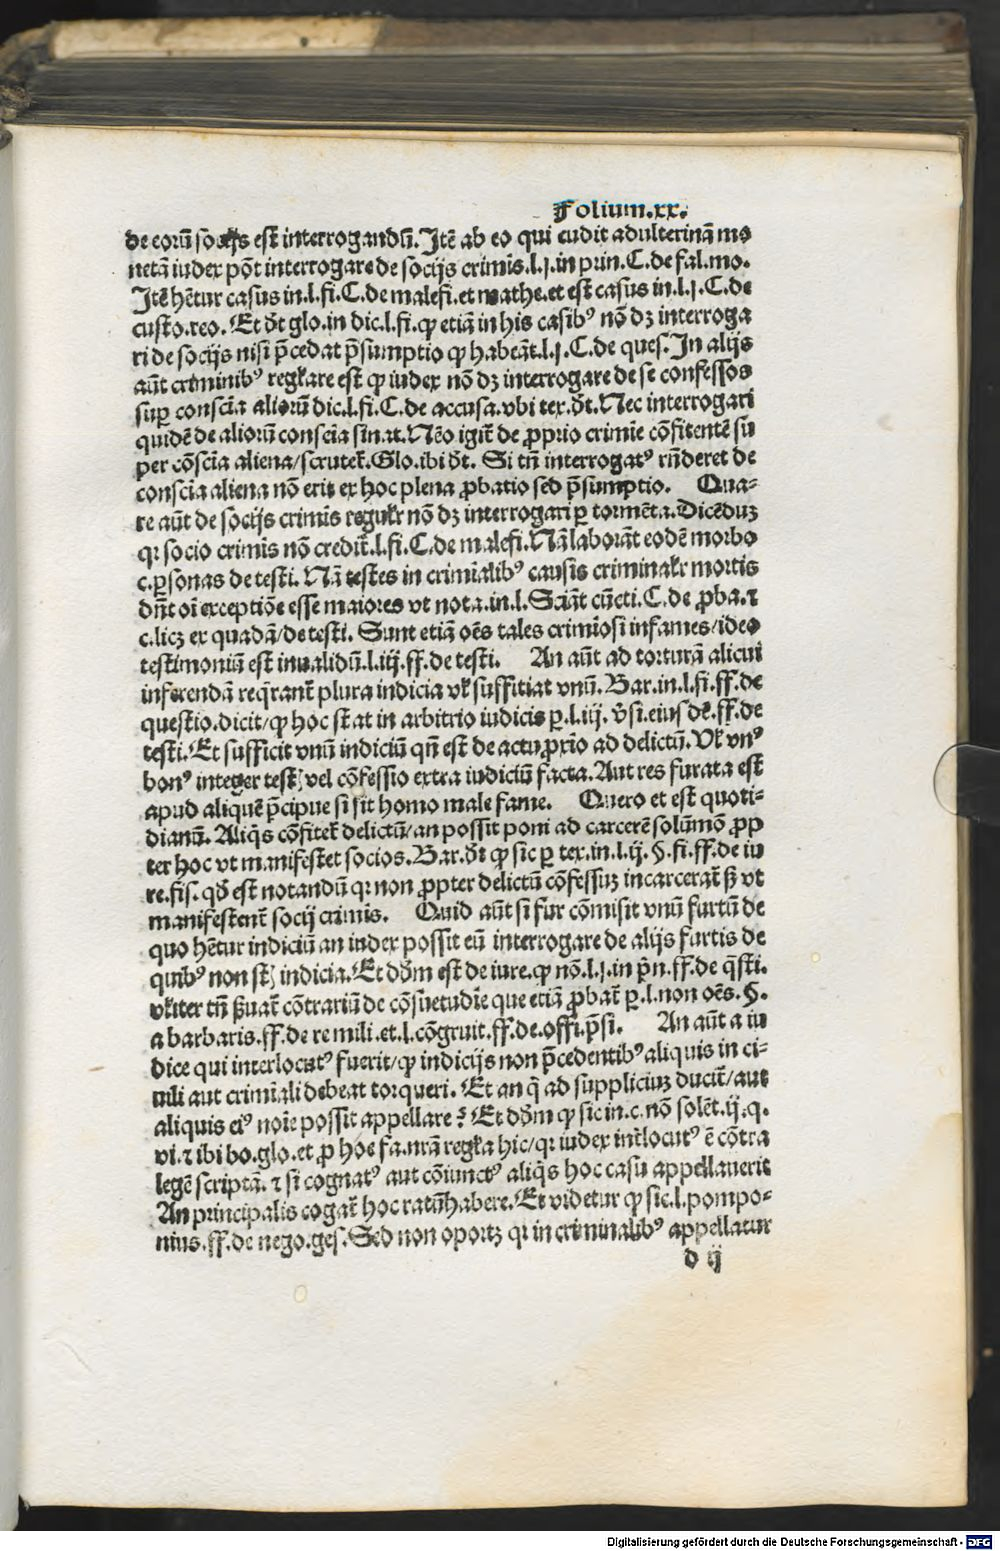 Folium.xx.
de eorū socijs est interrogandū. Itē ab eo qui cudit adulterinā mo
netā iudex pōt interrogare de socijs crimīs.l.j.in prin.C.de fal.mo.
Itē hētur casus in.l.fi.C.de malefi.et mathe.et est casus in.l.j.C.de
custo.reo. Et dt̄ glo.in dic.l.fi.ꝙ etiā in his casibꝰ nō dꝫ interroga
ri de socijs nisi p̄cedat p̄sumptio ꝙ habeāt.l.j.C.de ques. In alijs
aūt criminibꝰ regłare est ꝙ iudex nō dꝫ interrogare de se confessos
suꝑ conscīa aliorū dic.l.fi.C.de accusa.vbi tex.dt̄.Nec interrogari
quidē de aliorū conscīa sin.ꝛt.Nēo igit̄ de ꝓprio crimīe cōfitentē su
per cōscīa aliena/scrutet̄.Glo.ibi dt̄. Si tn̄ interrogatꝰ rn̄deret de
conscīa aliena nō erit ex hoc plena ꝓbatio sed p̄sumptio. Qua⸗
re aūt de socijs crimīs regulr̄ nō dꝫ interrogari ꝑ tormēta.Dicēduꝫ
qꝛ socio crimīs nō credit̄.l.fi.C.de malefi.Nā laborāt eodē morbo
c.ꝑsonas de testi. Nā testes in crimīalibꝰ causis criminalr̄ mortis
dn̄t oī exceptiōe esse maiores vt nota.in.l.Sciāt cūcti.C.de ꝓba.ꝛ
c.licꝫ ex quadā/de testi. Sunt etiā oēs tales crimīosi infames/ideo
testimoniū est inualidū.l.iij.ff.de testi. An aūt ad torturā alicui
inferendā reqͥrant̄ plura indicia vł suffitiat vnū. Bar.in.l.fi.ff.de
questio.dicit/ꝙ hoc stat in arbitrio iudicis ꝑ.l.iij. v̄si.eius dē.ff.de
testi.Et sufficit vnū indiciū qn̄ est de actu ꝓxīo ad delictū. Vł vnꝰ
bonꝰ integer testꝭ vel cōfessio extra iudiciū facta.Aut res furata est
apud aliquē p̄cipue si sit homo male fame. Quero et est quoti⸗
dianū. Aliqͥs cōfitet̄ delictū/an possit poni ad carcerē solūmō ꝓp
ter hoc vt manifestet socios.Bar.dt̄ ꝙ sic ꝑ tex.in.l.ij. §.fi.ff.de iu
re.fis. qd̄ est notandū qꝛ non ꝓpter delictū cōfessuꝫ incarcerat̄ sꝫ vt
manifestent̄ socij crimis. Quid aūt si fur cōmisit vnū furtū de
quo hētur indiciū an iudex possit eū interrogare de alijs furtis de
quibꝰ non st̄ indicia.Et dd̄m est de iure.ꝙ nō.l.j.in pn̄.ff.de q̄sti.
vłiter tn̄ ßuat̄ cōtrariū de cōsuetudīe que etiā ꝓbat̄ ꝑ.l.non oēs.§.
a barbaris.ff.de re mili.et.l.cōgruit.ff.de.offi.p̄si. An aūt a iu
dice qui interlocutꝰ fuerit/ꝙ indicijs non p̄cedentibꝰ aliquis in ci⸗
uili aut crimīali debeat torqueri. Et an qͥ ad suppliciuꝫ ducit̄/aut
aliquis eiꝰ noīe possit appellare? Et dd̄m ꝙ sic in.c.nō solēt.ij.q.
vi.ꝛ ibi bo.glo.et ꝓ hoc fa.nrā regła hic/qꝛ iudex int̄locutꝰ ē cōtra
legē scriptā. ꝛ si cognatꝰ aut cōiunctꝰ aliqͥs hoc casu appellauerit
An principalis cogat̄ hoc ratū habere.Et videtur ꝙ sic.l.pompo⸗
nius.ff.de nego.ges. Sed non oportꝫ qꝛ in criminalibꝰ appellatur
d ij
Digitalisierung gefördert durch die Deutsche Forschungsgemeinschaft - DFG